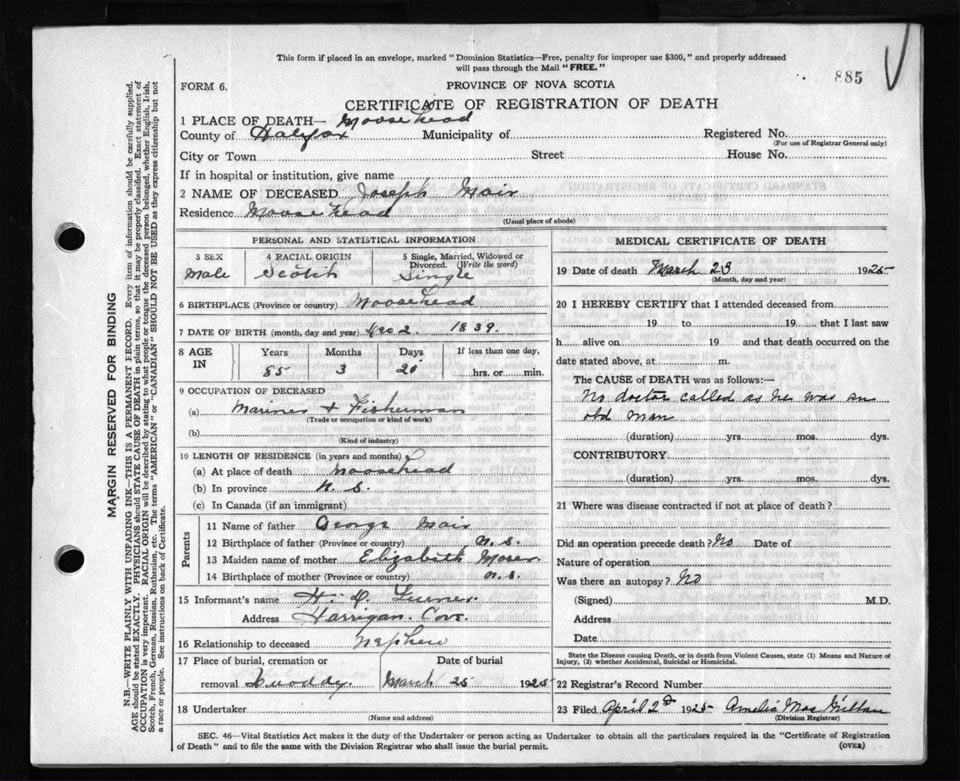 This form if placed in an envelope, marked "Dominion Statistics—Free, penalty for improper use $300," and properly addressed
will pass through the Mail "FREE."
885
FORM 6.
PROVINCE OF NOVA SCOTIA
CERTIFICATE OF REGISTRATION OF DEATH
1 PLACE OF DEATH— Moosehead
County of Halifax Municipality of Registered No.
(For use of Registrar General only)
City or Town Street House No.
If in hospital or institution, give name
2 NAME OF DECEASED Joseph Mair
Residence Moosehead
(Usual place of abode)
PERSONAL AND STATISTICAL INFORMATION
3 SEX 4 RACIAL ORIGIN 5 Single, Married, Widowed or
Divorced. (Write the word)
Male Scotch Single
6 BIRTHPLACE (Province or country) Moosehead
7 DATE OF BIRTH (month, day and year) Dec 2 1839.
8 AGE IN Years Months Days If less than one day,
85 3 20 hrs. or min.
9 OCCUPATION OF DECEASED
(a) Mariner & Fisherman
(Trade or occupation or kind of work)
(b)
(Kind of industry)
10 LENGTH OF RESIDENCE (in years and months)
(a) At place of death Moosehead
(b) In province N. S.
(c) In Canada (if an immigrant)
Parents
11 Name of father George Mair
12 Birthplace of father (Province or country) N. S.
13 Maiden name of mother Elizabeth Moser
14 Birthplace of mother (Province or country) N. S.
15 Informant's name H. D.
Address Harrigan Cove
16 Relationship to deceased Nephew
17 Place of burial, cremation or Date of burial
removal Quoddy. March 25 1925
18 Undertaker
(Name and address)
MEDICAL CERTIFICATE OF DEATH
19 Date of death March 23 1925
(Month, day and year)
20 I HEREBY CERTIFY that I attended deceased from
19 to 19 that I last saw
h alive on 19 and that death occurred on the
date stated above, at m.
The CAUSE of DEATH was as follows:—
No doctor called as he was an
old man
(duration) yrs. mos. dys.
CONTRIBUTORY
(duration) yrs. mos. dys.
21 Where was disease contracted if not at place of death?
Did an operation precede death? No Date of
Nature of operation
Was there an autopsy? No
(Signed) M.D.
Address
Date
State the Disease causing Death, or in death from Violent Causes, state (1) Means and Nature of
Injury, (2) whether Accidental, Suicidal or Homicidal.
22 Registrar's Record Number
23 Filed April 2d 1925 Amelia
(Division Registrar)
SEC. 46—Vital Statistics Act makes it the duty of the Undertaker or person acting as Undertaker to obtain all the particulars required in the "Certificate of Registration
of Death" and to file the same with the Division Registrar who shall issue the burial permit.
(OVER)
MARGIN RESERVED FOR BINDING
N.B.—WRITE PLAINLY WITH UNFADING INK—THIS IS A PERMANENT RECORD. Every item of information should be carefully supplied.
AGE should be stated EXACTLY. PHYSICIANS should STATE CAUSE OF DEATH in plain terms, so that it may be properly classified. Exact statement of
OCCUPATION is very important. RACIAL ORIGIN will be described by stating to what people or tongue the deceased person belonged, whether English, Irish,
Scotch, French, German, Russian, Ruthenian, etc. The terms "AMERICAN" or "CANADIAN" SHOULD NOT BE USED as they express citizenship but not
a race or people. See instructions on back of Certificate.